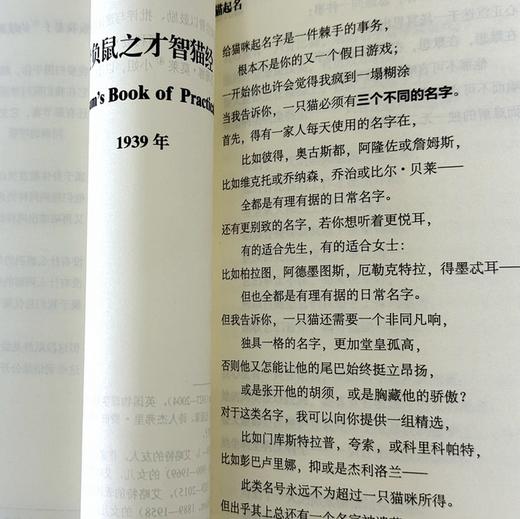 负鼠之才智猫经
um's Book of Practica
1939 年
猫起名
给猫咪起名字是一件棘手的事务，
根本不是你的又一个假日游戏；
一开始你也许会觉得我疯到一塌糊涂
当我告诉你，一只猫必须有三个不同的名字。
首先，得有一家人每天使用的名字在，
比如彼得，奥古斯都，阿隆佐或詹姆斯，
比如维克托或乔纳森，乔治或比尔·贝莱——
全都是有理有据的日常名字。
还有更别致的名字，若你想听着更悦耳，
有的适合先生，有的适合女士：
比如柏拉图，阿德墨图斯，厄勒克特拉，得墨忒耳——
但也全都是有理有据的日常名字。
但我告诉你，一只猫还需要一个非同凡响，
独具一格的名字，更加堂皇孤高，
否则他又怎能让他的尾巴始终挺立昂扬，
或是张开他的胡须，或是胸藏他的骄傲？
对于这类名字，我可以向你提供一组精选，
比如门库斯特拉普，夸索，或科里科帕特，
比如彭巴卢里娜，抑或是杰利洛兰——
此类名号永远不为超过一只猫咪所得。
但出乎其上总还有一个名字被遗